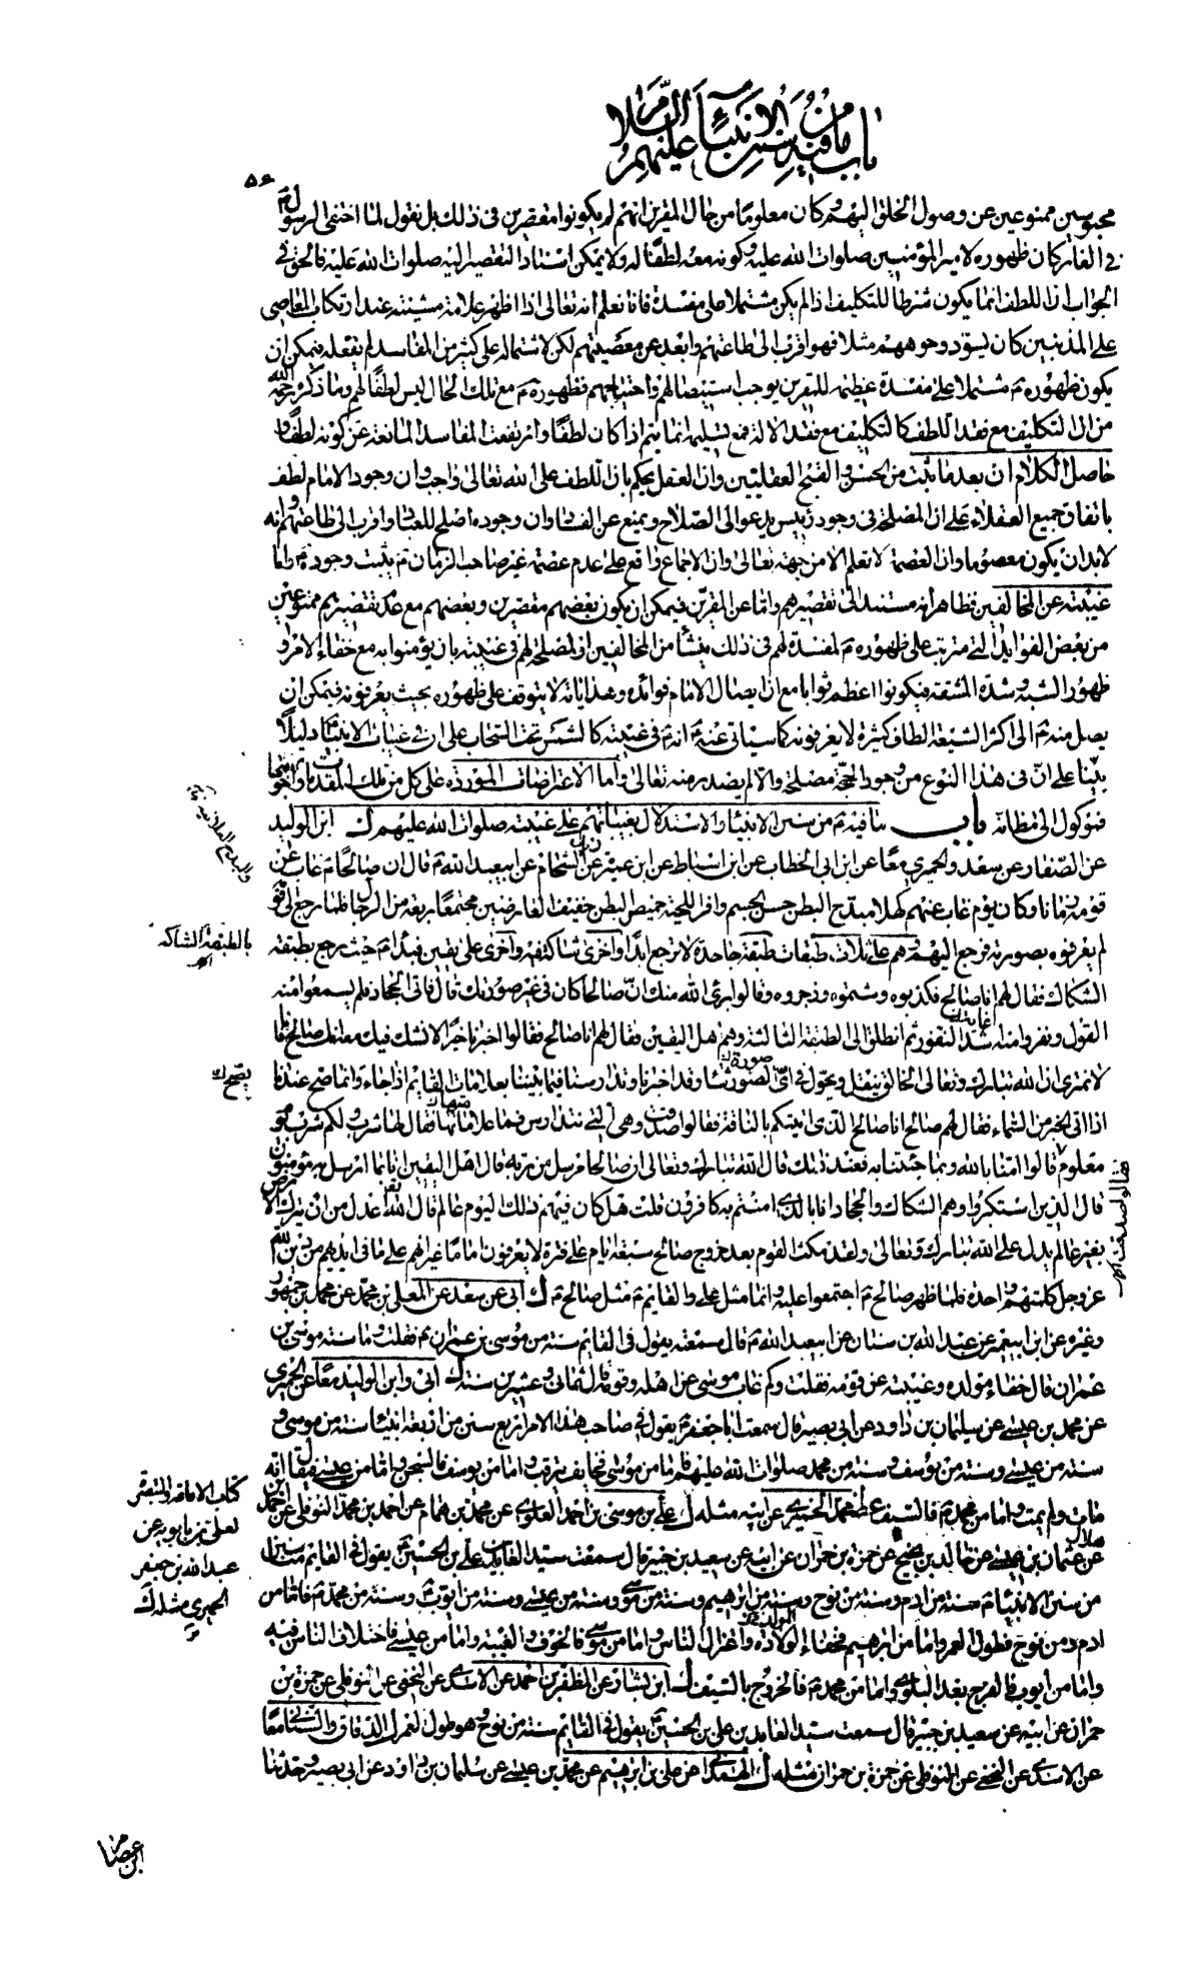 باب ما فيه من سنن الانبياء عليهم السلام
٥٦
محبوسين ممنوعين عن وصول الخلق اليهم وكان معلوما من حال المقرين انهم لم يكونوا مقصرين في ذلك بل نقول لما اختفى الرسول ص
في الغار كان ظهوره لامير المؤمنين صلوات الله عليه وكونه معه لطفا له ولا يمكن اسناد التقصير اليه صلوات الله عليه فالحق في
الجواب ان اللطف انما يكون شرطا للتكليف اذا لم يكن مشتملا على مفسدة فانا نعلم انه تعالى اذا اظهر علامة مشيته عند ارتكاب المعاصي
على المذنبين كان يسود وجوههم مثلا فهو اقرب الى طاعتهم وابعد عن معصيتهم لكن لاشتماله على كثير من المفاسد لم يفعله فيمكن ان
يكون ظهوره ع مشتملا على مفسدة عظيمة للمقرين يوجب استيصالهم واجتياحهم فظهوره ع مع تلك الحال ليس لطفا لهم وما ذكره رحمه الله
من ان التكليف مع فقد اللطف كالتكليف مع فقد الآلة فمع تسليمه انما يتم اذا كان لطفا وارتفعت المفاسد المانعة عن كونه لطفا و
حاصل الكلام ان بعد ما ثبت من الحسن و القبح العقليين وان العقل يحكم بان اللطف على الله تعالى واجب وان وجود الامام لطف
باتفاق جميع العقلاء على ان المصلحة في وجود رئيس يدعو الى الصلاح ويمنع عن الفساد وان وجوده اصلح للعباد واقرب الى طاعتهم وانه
لابد ان يكون معصوما وان العصمة لا تعلم الا من جهته تعالى وان الاجماع واقع على عدم عصمة غير صاحب الزمان ع يثبت وجوده ع واما
غيبته عن المخالفين فظاهر انه مستند الى تقصيرهم واما عن المقرين فيمكن ان يكون بعضهم مقصرين وبعضهم مع عدم تقصيرهم ممنوعين
من بعض الفوايد التي تترتب على ظهوره ع لمفسدة لهم في ذلك ينشأ من المخالفين او لمصلحة لهم في غيبته بان يؤمنوا به مع خفاء الامر و
ظهور الشبه وشدة المشقة فيكونوا اعظم ثوابا مع ان ايصال الامام فوائده وهداياته لا يتوقف على ظهوره بحيث يعرفونه فيمكن ان
يصل منه ع الى اكثر الشيعة الطاف كثيرة لا يعرفونه كما سياتي عنه ع انه في غيبته كالشمس تحت السحاب على ان في غيبات الانبياء دليلا
بينا على ان في هذا النوع من وجود الحجة مصلحة والا لم يصدر منه تعالى واما الاعتراضات الموردة على كل من تلك المقدمات واجوبتها
فموكول الى مظانه باب ما فيه ع من سنن الانبياء والاستدلال بغيباتهم على غيبته صلوات الله عليهم ك ابن الوليد
عن الصفار وعن سعد والحميري معا عن ابن ابي الخطاب عن ابن اسباط عن ابن عميرة عن الشحام عن ابيعبد الله ع قال ان صالحا ع غاب عن
قومه زمانا وكان يوم غاب عنهم كهلا مبدح البطن حسن الجسم وافر اللحية خميص البطن خفيف العارضين مجتمعا ربعة من الرجال فلما رجع الى قومه
لم يعرفوه بصورته فرجع اليهم وهم على ثلاث طبقات طبقة جاحدة لا ترجع ابدا واخرى شاكة فيه واخرى على يقين فبدأ ع حيث رجع بطبقة
الشكاك فقال لهم انا صالح فكذبوه وشتموه وزجروه وقالوا برئ الله منك ان صالحا كان في غير صورتك قال فاتى الجحاد فلم يسمعوا منه
القول ونفروا منه اشد النفور ثم انطلق الى الطبقة الثالثة وهم اهل اليقين فقال لهم انا صالح فقالوا اخبرنا خبرا لا نشك فيك معه انك صالح فانا
لا نمتري ان الله تبارك وتعالى الخالق ينقل ويحول في اي الصور شاء وقد اخبرنا وتدارسنا فيما بيننا بعلامات القايم اذا جاء وانما صح عندنا
اذا اتى الخبر من السماء فقال لهم صالح انا صالح الذي اتيتكم بالناقة فقالوا صدقت وهي التي نتدارس فما علاماتها فقال لها شرب ولكم شرب يوم
معلوم قالوا آمنا بالله وبما جئتنا به فعند ذلك قال الله تبارك وتعالى ان صالحا مرسل من ربه قال اهل اليقين انا بما ارسل به مؤمنون
قال الذين استكبروا وهم الشكاك والجحاد انا بالذي امنتم به كافرون قلت هل كان فيهم ذلك اليوم عالم قال الله اعدل من ان يترك الارض
بغير عالم يدل على الله تبارك وتعالى ولقد مكث القوم بعد خروج صالح سبعة ايام على فترة لا يعرفون اماما غير انهم على ما في ايديهم من دين الله
عز وجل كلمتهم واحدة فلما ظهر صالح ع اجتمعوا عليه وانما مثل علي والقايم ع مثل صالح ع ك ابي عن سعد عن المعلى بن محمد عن محمد بن جمهور
وغيره عن ابن ابيعمير عن عبد الله بن سنان عن ابيعبد الله ع قال سمعته يقول في القايم سنة من موسى بن عمران ع فقلت وما سنة موسى بن
عمران قال خفاء مولده وغيبته عن قومه فقلت وكم غاب موسى عن اهله وقومه قال ثماني وعشرين سنة ك ابي وابن الوليد معا عن الحميري
عن محمد بن عيسى عن سليمان بن داود عن ابي بصير قال سمعت ابا جعفر ع يقول في صاحب هذا الامر اربع سنن من اربعة انبياء سنة من موسى و
سنة من عيسى وسنة من يوسف وسنة من محمد صلوات الله عليهم فاما من موسى فخايف يترقب واما من يوسف فالسجن واما من عيسى فيقال انه
مات ولم يمت واما من محمد ع فالسيف غط محمد الحميري عن ابيه مثله ك علي بن موسى بن احمد العلوي عن محمد بن همام عن احمد بن محمد النوفلي عن احمد بن هلال
عن عثمان بن عيسى عن خالد بن نجيح عن حمزة بن حمران عن ابيه عن سعيد بن جبير قال سمعت سيد العابدين علي بن الحسين ع يقول في القايم منا سنن
من سنن الانبياء ع سنة من ادم وسنة من نوح وسنة من ابرهيم وسنة من موسى وسنة من عيسى وسنة من ايوب وسنة من محمد ع فاما من
ادم ومن نوح فطول العمر واما من ابرهيم فخفاء الولادة واعتزال الناس واما من موسى فالخوف والغيبة واما من عيسى فاختلاف الناس فيه
واما من أيوب فالفرج بعد البلوى واما من محمد ع فالخروج بالسيف ك ابن بشار عن المظفر بن احمد عن الاسدي عن النخعي عن النوفلي عن حمزة بن
حمران عن ابيه عن سعيد بن جبير قال سمعت سيد العابدين علي بن الحسين يقول في القايم سنة من نوح وهو طول العمر ك الدقاق والشيباني معا
عن الاسدي عن النخعي عن النوفلي عن حمزة بن حمران مثله ك الهمداني عن علي بن ابرهيم عن محمد بن عيسى عن سليمان بن داود عن ابي بصير وحدثنا
بالطبقة الشاكة
يصح ك
كتاب الامامة والتبصرة
لعلي بن بابويه عن
عبد الله بن جعفر
الحميري مثله ك
ابن عصام